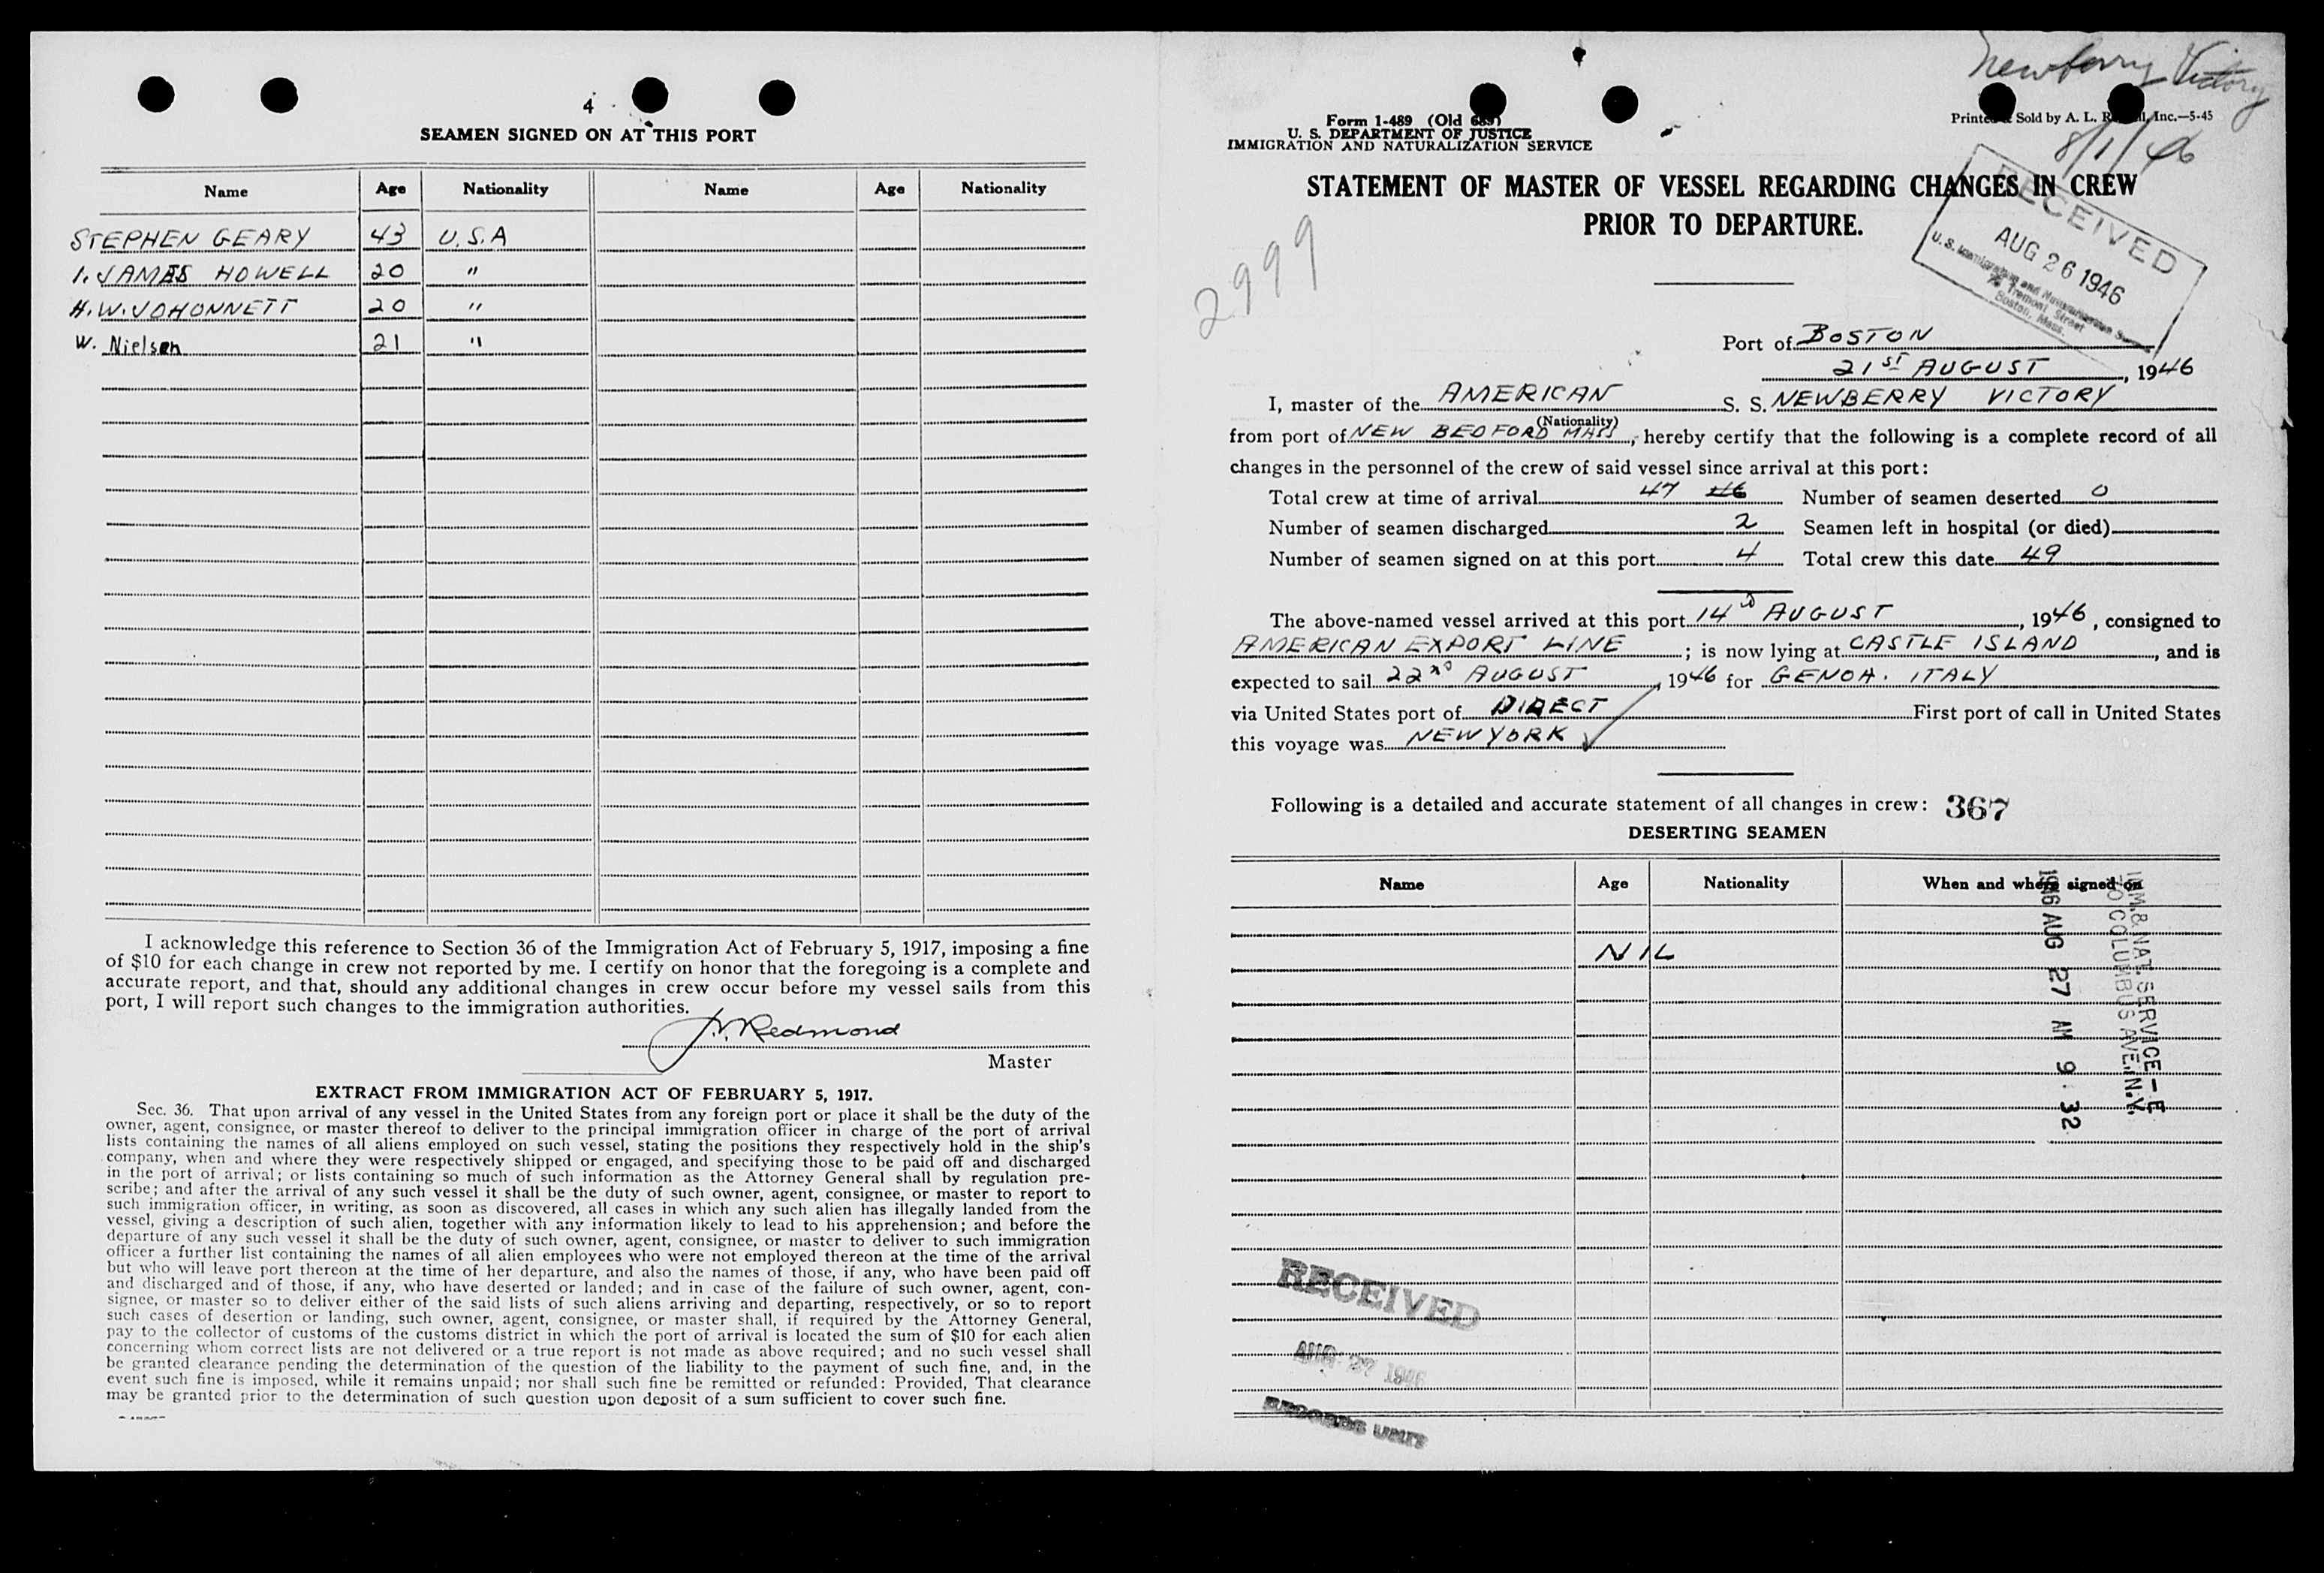 4
SEAMEN SIGNED ON AT THIS PORT
Name Age Nationality Name Age Nationality
STEPHEN GEARY 43 U.S.A
1. JAMES HOWELL 20 "
H.W. JOHONNETT 20 "
W. Nielsen 21 "
I acknowledge this reference to Section 36 of the Immigration Act of February 5, 1917, imposing a fine
of $10 for each change in crew not reported by me. I certify on honor that the foregoing is a complete and
accurate report, and that, should any additional changes in crew occur before my vessel sails from this
port, I will report such changes to the immigration authorities.
J. Redmond
Master
EXTRACT FROM IMMIGRATION ACT OF FEBRUARY 5, 1917.
Sec. 36. That upon arrival of any vessel in the United States from any foreign port or place it shall be the duty of the
owner, agent, consignee, or master thereof to deliver to the principal immigration officer in charge of the port of arrival
lists containing the names of all aliens employed on such vessel, stating the positions they respectively hold in the ship's
company, when and where they were respectively shipped or engaged, and specifying those to be paid off and discharged
in the port of arrival; or lists containing so much of such information as the Attorney General shall by regulation pre-
scribe; and after the arrival of any such vessel it shall be the duty of such owner, agent, consignee, or master to report to
such immigration officer, in writing, as soon as discovered, all cases in which any such alien has illegally landed from the
vessel, giving a description of such alien, together with any information likely to lead to his apprehension; and before the
departure of any such vessel it shall be the duty of such owner, agent, consignee, or master to deliver to such immigration
officer a further list containing the names of all alien employees who were not employed thereon at the time of the arrival
but who will leave port thereon at the time of her departure, and also the names of those, if any, who have been paid off
and discharged and of those, if any, who have deserted or landed; and in case of the failure of such owner, agent, con-
signee, or master so to deliver either of the said lists of such aliens arriving and departing, respectively, or so to report
such cases of desertion or landing, such owner, agent, consignee, or master shall, if required by the Attorney General,
pay to the collector of customs of the customs district in which the port of arrival is located the sum of $10 for each alien
concerning whom correct lists are not delivered or a true report is not made as above required; and no such vessel shall
be granted clearance pending the determination of the question of the liability to the payment of such fine, and, in the
event such fine is imposed, while it remains unpaid; nor shall such fine be remitted or refunded: Provided, That clearance
may be granted prior to the determination of such question upon deposit of a sum sufficient to cover such fine.
Newberry Victory
8/1/46
Form 1-489 (Old 689)
U. S. DEPARTMENT OF JUSTICE
IMMIGRATION AND NATURALIZATION SERVICE
Printed & Sold by A. L. Inc.—5-45
STATEMENT OF MASTER OF VESSEL REGARDING CHANGES IN CREW
PRIOR TO DEPARTURE.
2999
RECEIVED
AUG 26 1946
U. S. Immigration and Naturalization
Tremont Street
Boston, Mass.
Port of BOSTON
21ST AUGUST, 1946
I, master of the AMERICAN S. S. NEWBERRY VICTORY
(Nationality)
from port of NEW BEDFORD MASS, hereby certify that the following is a complete record of all
changes in the personnel of the crew of said vessel since arrival at this port:
Total crew at time of arrival 47 46 Number of seamen deserted 0
Number of seamen discharged 2 Seamen left in hospital (or died)
Number of seamen signed on at this port 4 Total crew this date 49
The above-named vessel arrived at this port 14 AUGUST, 1946, consigned to
AMERICAN EXPORT LINE; is now lying at CASTLE ISLAND, and is
expected to sail 22ND AUGUST, 1946 for GENOA. ITALY
via United States port of DIRECT First port of call in United States
this voyage was NEW YORK
Following is a detailed and accurate statement of all changes in crew: 367
DESERTING SEAMEN
Name Age Nationality When and where signed on
NIL
IMM. & NAT. SERVICE - E
70 COLUMBUS AVE. N.Y.
1946 AUG 27 AM 9 32
RECEIVED
AUG 27 1946
RECORDS UNIT